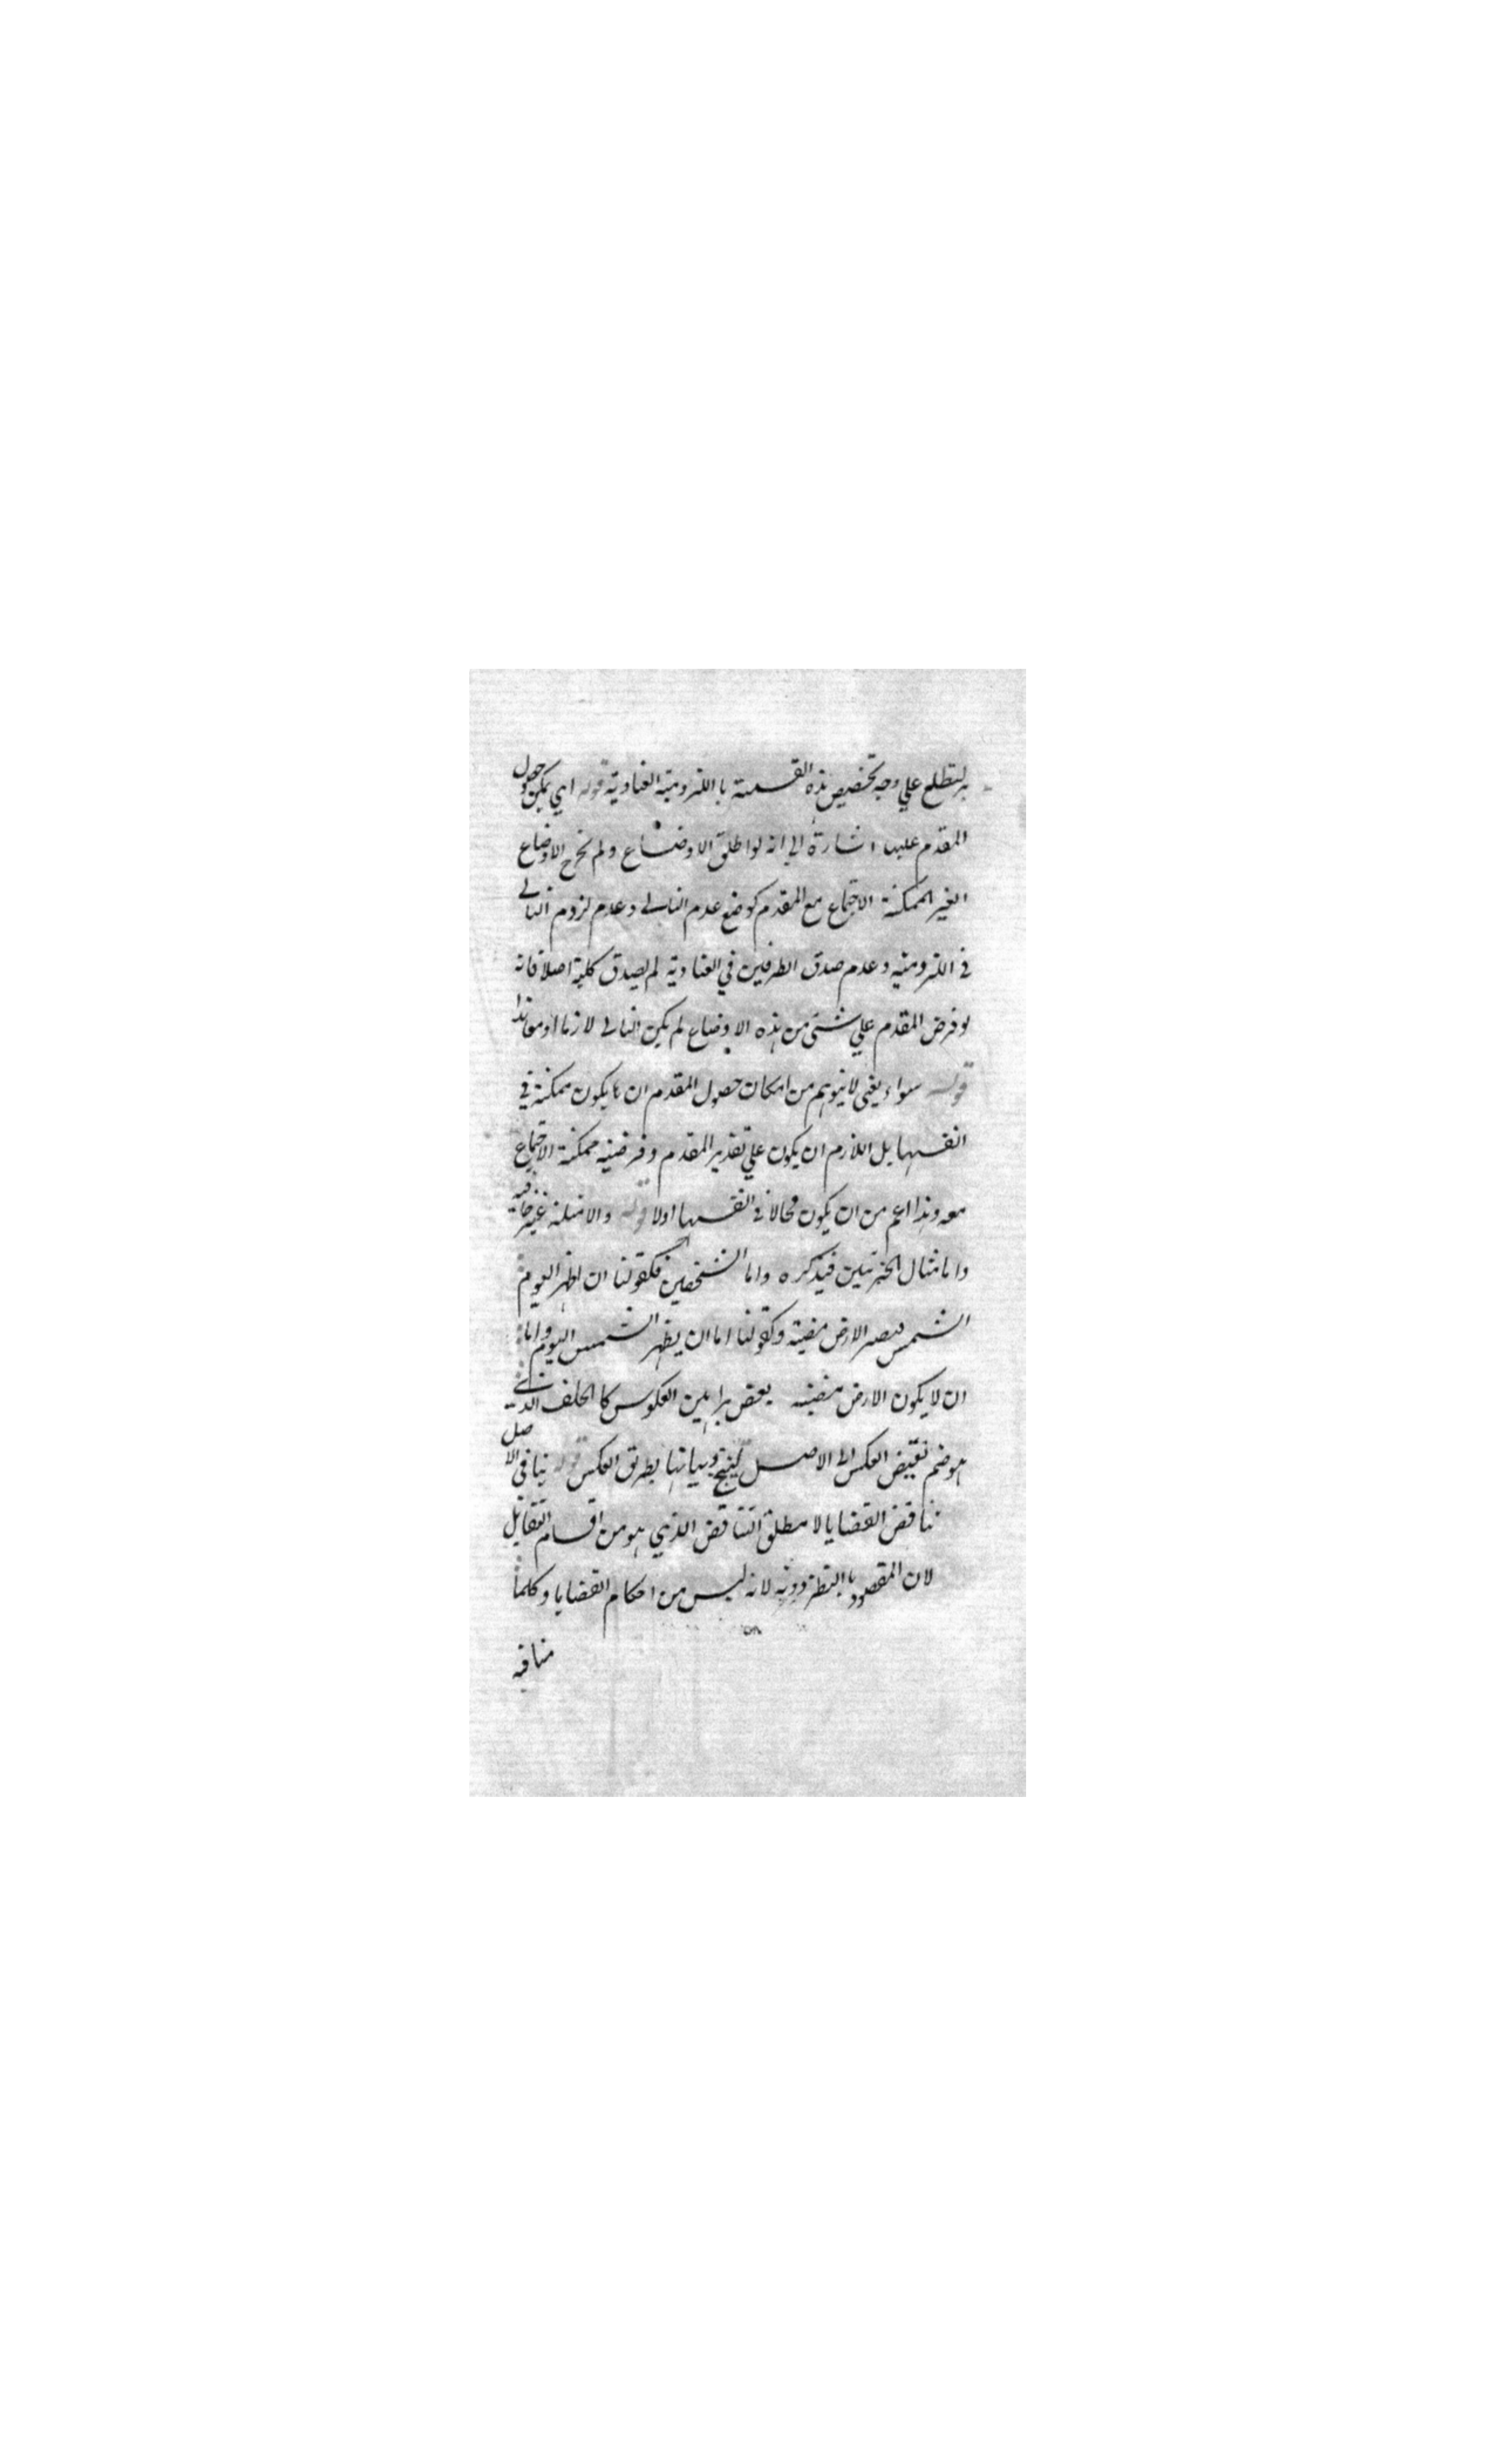 لتطلع علي وجه تخصيص هذه القسمة با اللزومية العنادية قوله اي يمكن حصول
المقدم عليها اشارة الي انه لو اطلق الاوضاع ولم تخرج الاوضاع
الغير الممكنة الاجتماع مع المقدم كوضع عدم التالي وعدم لزوم التالي
في اللزومية وعدم صدق الطرفين في العنادية لم يصدق كلية اصلا فانه
لو فرض المقدم علي شئ من هذه الاوضاع لم يكن التالي لازما او معاندا
قوله سواء يعني لا يتوهم من امكان حصول المقدم ان يكون ممكنة في
انفسها بل اللازم ان يكون علي تقدير المقدم وفرضيه ممكنة الاجتماع
معه وهذا اعم من ان يكون محالا في انفسها اولا قوله والامثلة غير خافية
واما مثال الجزئيتين فيذكره واما الشخصيتين فكقولنا ان اظهر اليوم
الشمس فيصير الارض مضيئة وكقولنا اما ان يظهر الشمس اليوم واما
ان لا يكون الارض مضيئة بعض براهين العكوس كا الخلف الذي
هو ضم نقيض العكس الي الاصل لينتج وبيانها بطريق العكس قوله ينافي الاصل
تناقض القضايا لا مطلق التناقض الذي هو من اقسام التقابل
لان المقصود با النظر دونه لانه ليس من احكام القضايا وكلما
منافيه